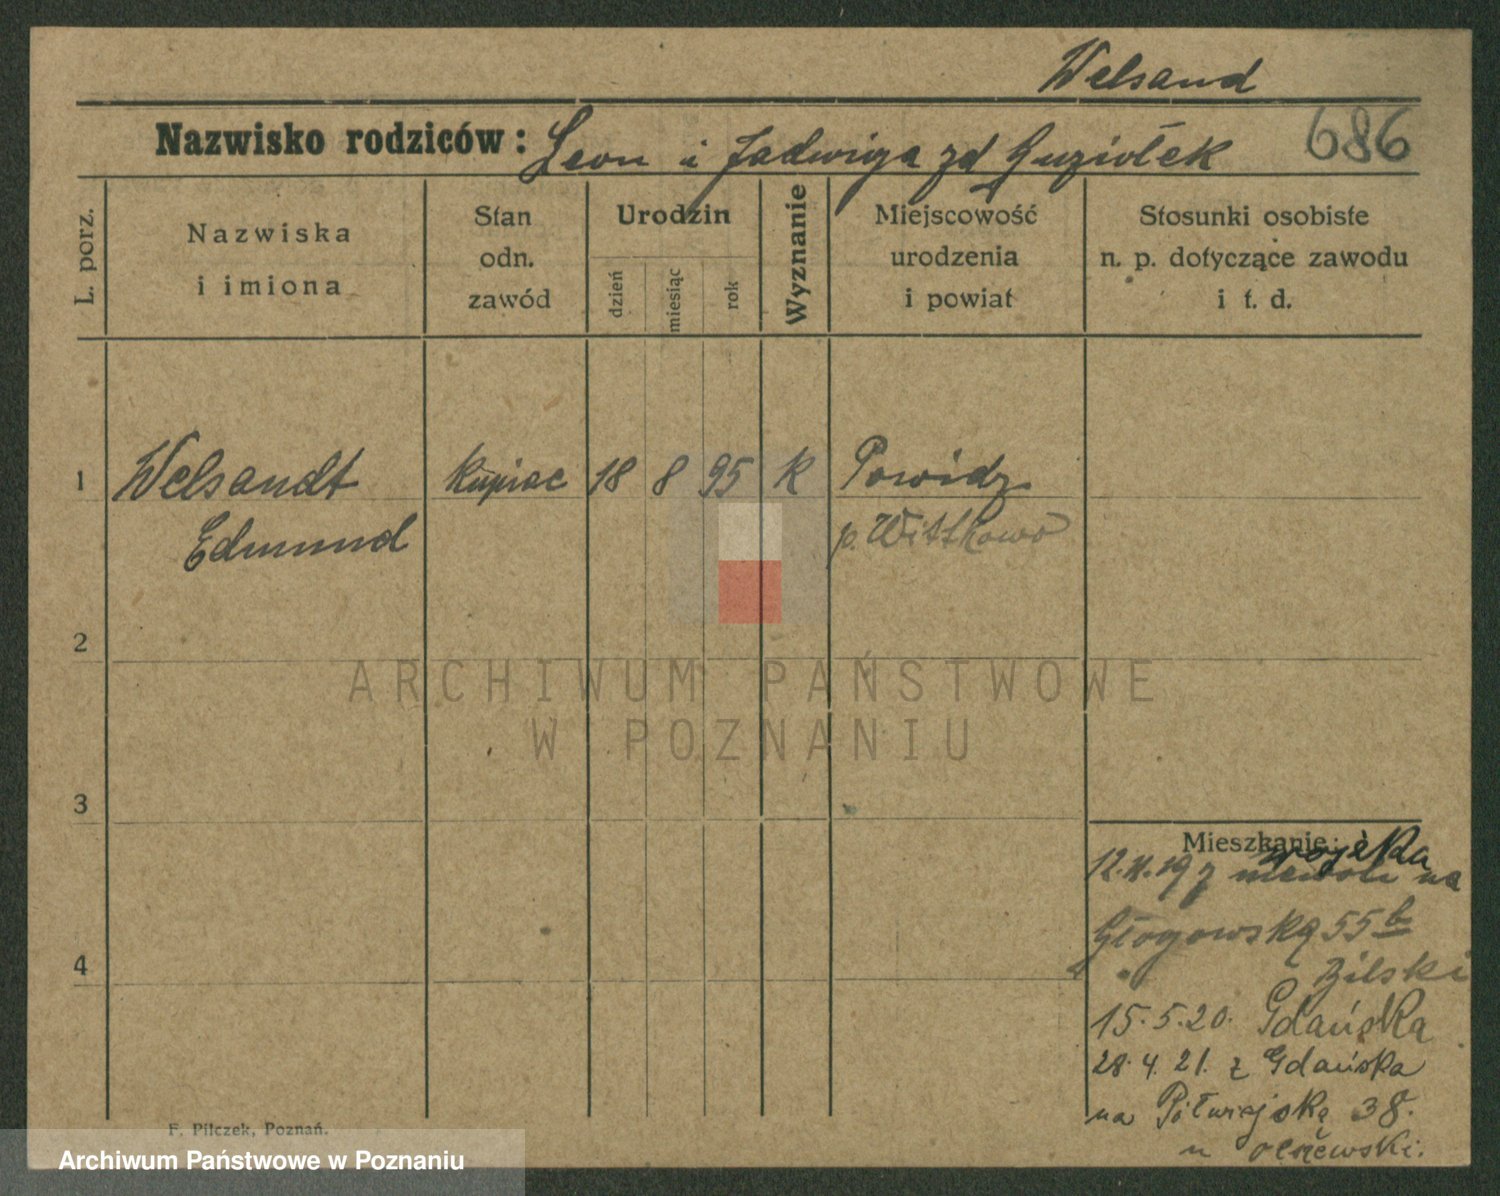 Welsand
Nazwisko rodziców: Leon i Jadwiga zd Guziołek 686
L. porz.
Nazwiska i imiona
Stan odn. zawód
Urodzin
dzień
miesiąc
rok
Wyznanie
Miejscowość urodzenia i powiat
Stosunki osobiste n. p. dotyczące zawodu i t. d.
1 Welsandt kupiec 18 8 95 k Powidz
Edmund p. Wittkowo
2
ARCHIWUM PAŃSTWOWE
W POZNANIU
3
Mieszkanie:
wojska
12.XI.19 z na
Głogowską 55 b
4
Zilski
15.5.20. Gdańska
28.4.21. z Gdańska
na Półwiejską 38.
u Olszewski.
F. Pilczek, Poznań.
Archiwum Państwowe w Poznaniu